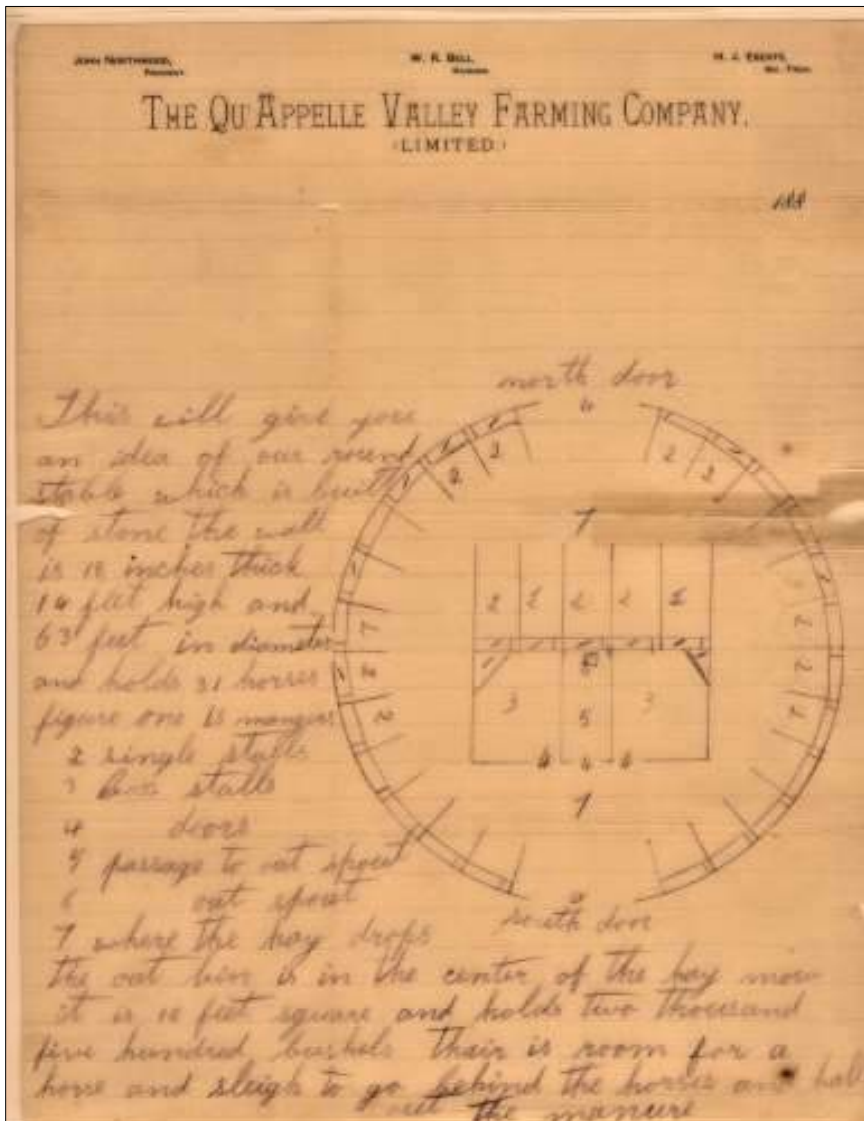 JOHN NORTHWOOD, W. R. BELL, H. J. EBERTS,
PRESIDENT. MANAGER. SEC. TREAS.
THE QU'APPELLE VALLEY FARMING COMPANY.
(LIMITED.)
188
north door
This will give you
an idea of our round
stable which is built
of stone the wall
is 18 inches thick
14 feet high and
63 feet in diameter
and holds 31 horses
figure one is mangers
2 single stalls
3 box stalls
4 doors
5 passage to oat spout
6 oat spout
7 where the hay drops
south door
the oat bin is in the center of the hay mow
it is feet square and holds two thousand
five hundred bushels thair is room for a
horse and sleigh to go behind the horses and hall
out the manure